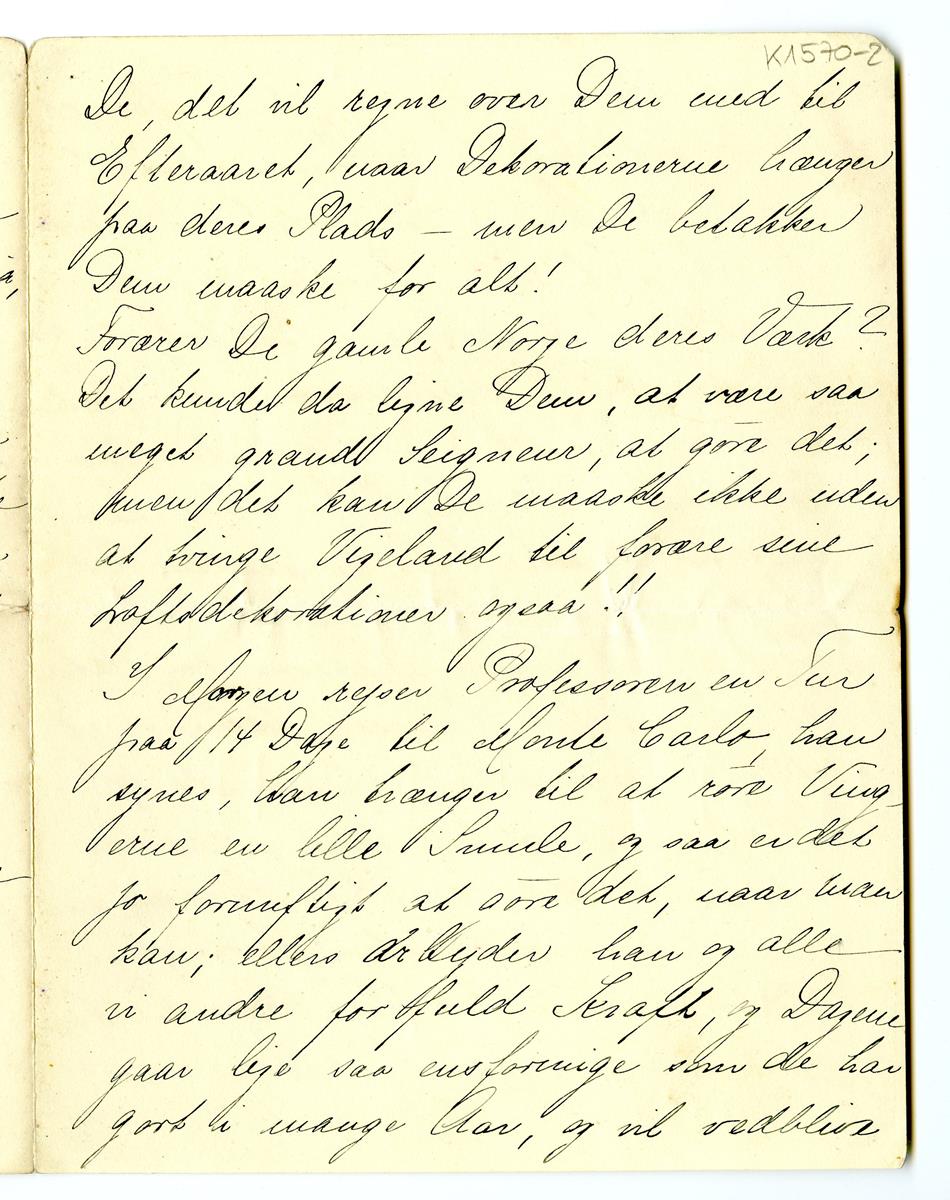 K1570-2
De, det vil regne over Dem med til
Efteraaret, naar Dekorationerne hænger
paa deres Plads – men De betakker
Dem maaske for alt!
Forærer De gamle Norge deres Værk?
Det kunde da ligne Dem, at være saa
meget grand Seigneur, at gøre det;
men det kan De maaske ikke uden
at tvinge Vigeland til forære sine
Loftsdekorationer ogsaa!!
I Morgen rejser Professoren en Tur
paa 14 Dage til Monte Carlo, han
synes, han trænger til at røre Ving-
erne en lille Smule, og saa er det
jo fornuftigt at gøre det, naar man
kan; ellers arbejder han og alle
vi andre for fuld Kraft, og Dagene
gaar lige saa ensformige som de har
gort i mange Aar, og vil vedblive